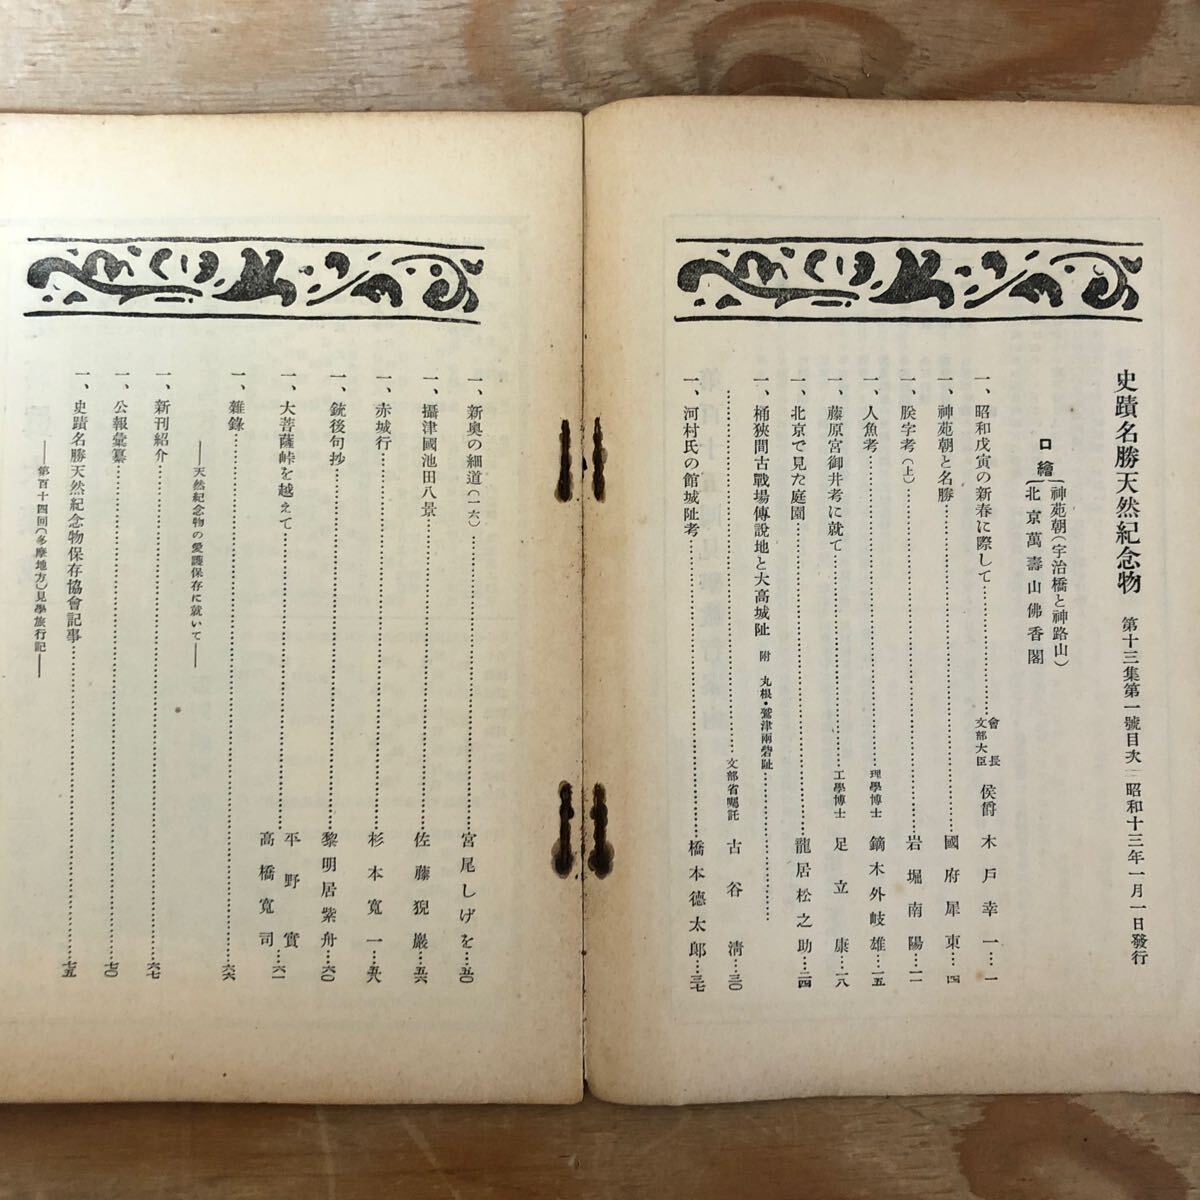 史蹟名勝天然紀念物 第十三集第一號目次 ―昭和十三年一月一日發行
口繪{神苑朝(宇治橋と神路山)
北京萬壽山佛香閣
一、昭和戊寅の新春に際して……會長 文部大臣 侯爵 木戸幸一…一
一、神苑朝と名勝……國府犀東…四
一、朕字考(上)……岩堀南陽…一一
一、人魚考……理學博士 鏑木外岐雄…一五
一、藤原宮御井考に就て……工學博士 足立康…一八
一、北京で見た庭園……龍居松之助…二四
一、桶狹間古戰場傳說地と大高城阯 附 丸根・鷲津兩砦趾……
……文部省囑託 古谷淸…三〇
一、河村氏の館城阯考……橋本德太郎…三七
一、新奥の細道(一六)……宮尾しげを…五〇
一、攝津國池田八景……佐藤猊巖…五六
一、赤城行……杉本寬一…五八
一、銃後句抄……黎明居紫舟…六〇
一、大菩薩峠を越えて……平野實…六一
高橋寬司
一、雜錄……六六
――天然紀念物の愛護保存に就いて――
一、新刊紹介……六七
一、公報彙纂……七〇
一、史蹟名勝天然紀念物保存協會記事……七五
――第百十四回(多摩地方)見學旅行記――